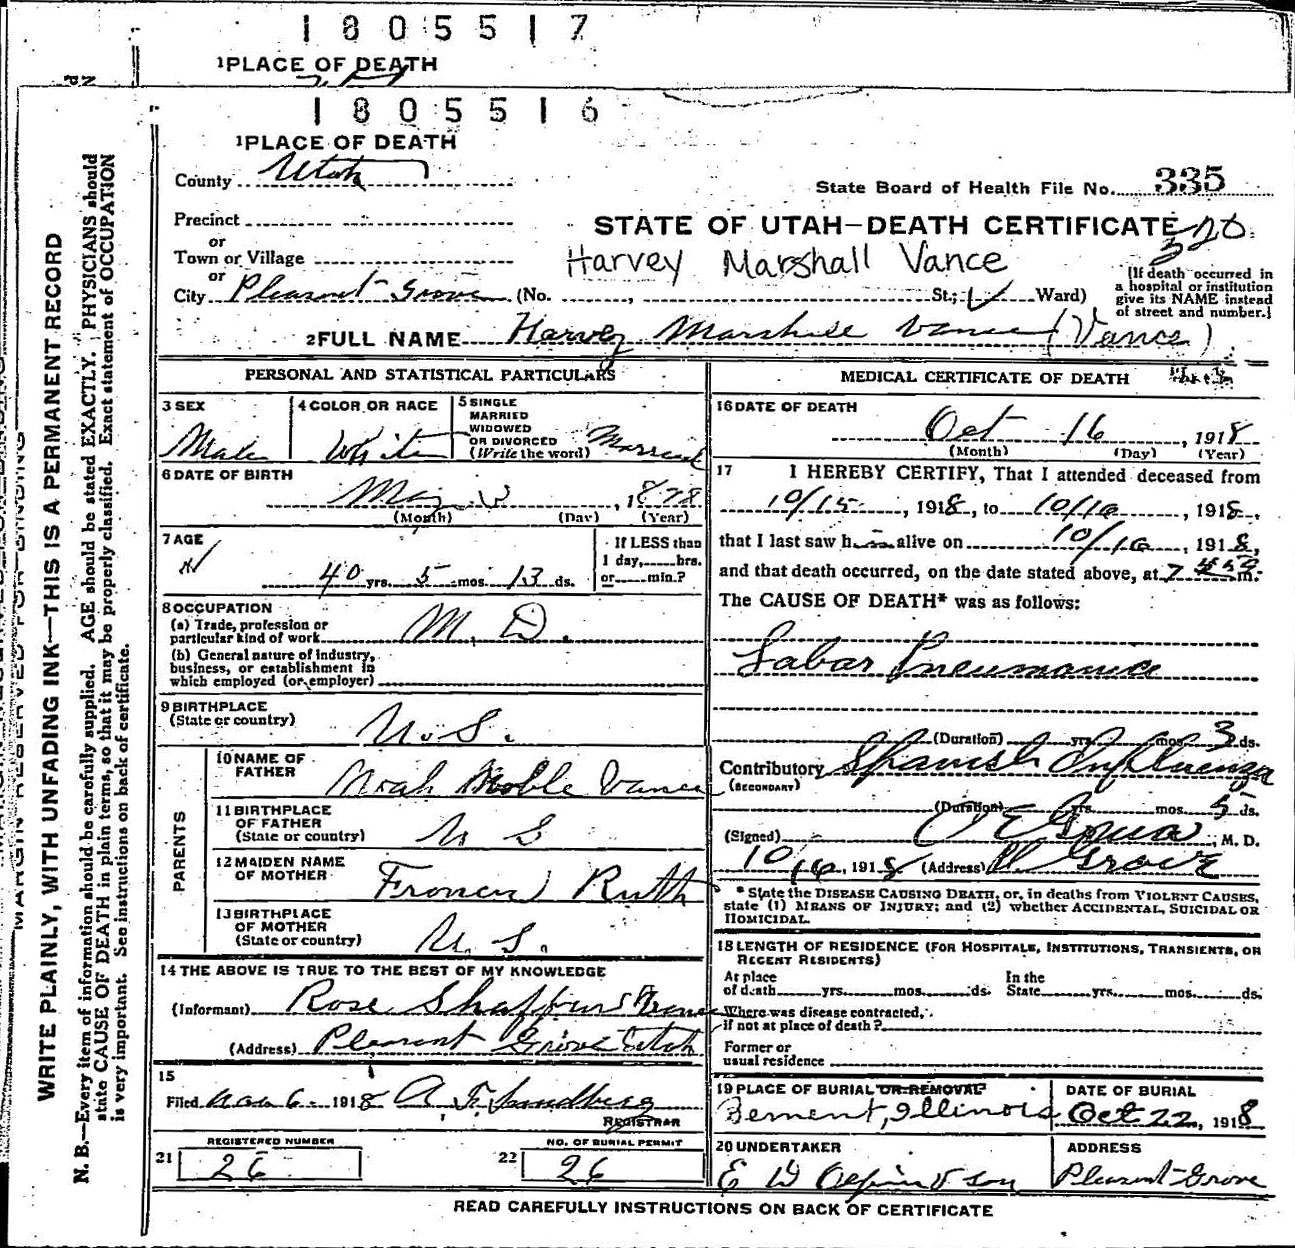 1805517
1PLACE OF DEATH
1805516
1PLACE OF DEATH
County Utah
State Board of Health File No. 335
Precinct
STATE OF UTAH—DEATH CERTIFICATE
320
or
Town or Village
Harvey Marshall Vance
or
City Pleasant Grove (No. , St.; Ward)
(If death occurred in
a hospital or institution
give its NAME instead
of street and number.)
2FULL NAME Harvey Marshall Vance (Vance)
PERSONAL AND STATISTICAL PARTICULARS
3 SEX
Male
4 COLOR OR RACE
White
5 SINGLE
MARRIED
WIDOWED
OR DIVORCED
(Write the word) Married
6 DATE OF BIRTH
May 3, 1878
(Month) (Day) (Year)
7 AGE
40 yrs. 5 mos. 13 ds.
If LESS than
1 day, hrs.
or min.?
8 OCCUPATION
(a) Trade, profession or
particular kind of work M. D.
(b) General nature of industry,
business, or establishment in
which employed (or employer)
9 BIRTHPLACE
(State or country) U. S.
PARENTS
10 NAME OF
FATHER Noah Noble Vance
11 BIRTHPLACE
OF FATHER
(State or country) U S
12 MAIDEN NAME
OF MOTHER Frances Ruth
13 BIRTHPLACE
OF MOTHER
(State or country) U. S.
14 THE ABOVE IS TRUE TO THE BEST OF MY KNOWLEDGE
(Informant) Rose Shaffer Vance
(Address) Pleasant Grove Utah
15
Filed Nov 6 1918 A. F. Sandberg
REGISTRAR
REGISTERED NUMBER
21 26
NO. OF BURIAL PERMIT
22 26
MEDICAL CERTIFICATE OF DEATH
16 DATE OF DEATH
Oct 16, 1918
(Month) (Day) (Year)
17 I HEREBY CERTIFY, That I attended deceased from
10/15, 1918, to 10/16, 1918,
that I last saw h alive on 10/16, 1918,
and that death occurred, on the date stated above, at 7 m.
The CAUSE OF DEATH* was as follows:
Labar Pneumonia
(Duration) yrs. mos. 3 ds.
Contributory Spanish Influenza
(SECONDARY)
(Duration) yrs. mos. 5 ds.
(Signed) , M. D.
10/16, 1918 (Address) Grove
* State the DISEASE CAUSING DEATH, or, in deaths from VIOLENT CAUSES,
state (1) MEANS OF INJURY; and (2) whether ACCIDENTAL, SUICIDAL OR
HOMICIDAL.
18 LENGTH OF RESIDENCE (FOR HOSPITALS, INSTITUTIONS, TRANSIENTS, OR
RECENT RESIDENTS)
At place
of death yrs. mos. ds.
In the
State yrs. mos. ds.
Where was disease contracted,
if not at place of death?
Former or
usual residence
19 PLACE OF BURIAL OR REMOVAL
Bement, Illinois
DATE OF BURIAL
Oct 22, 1918
20 UNDERTAKER
E D & son
ADDRESS
Pleasant Grove
READ CAREFULLY INSTRUCTIONS ON BACK OF CERTIFICATE
WRITE PLAINLY, WITH UNFADING INK—THIS IS A PERMANENT RECORD
N. B.—Every item of information should be carefully supplied. AGE should be stated EXACTLY. PHYSICIANS should
state CAUSE OF DEATH in plain terms, so that it may be properly classified. Exact statement of OCCUPATION
is very important. See instructions on back of certificate.